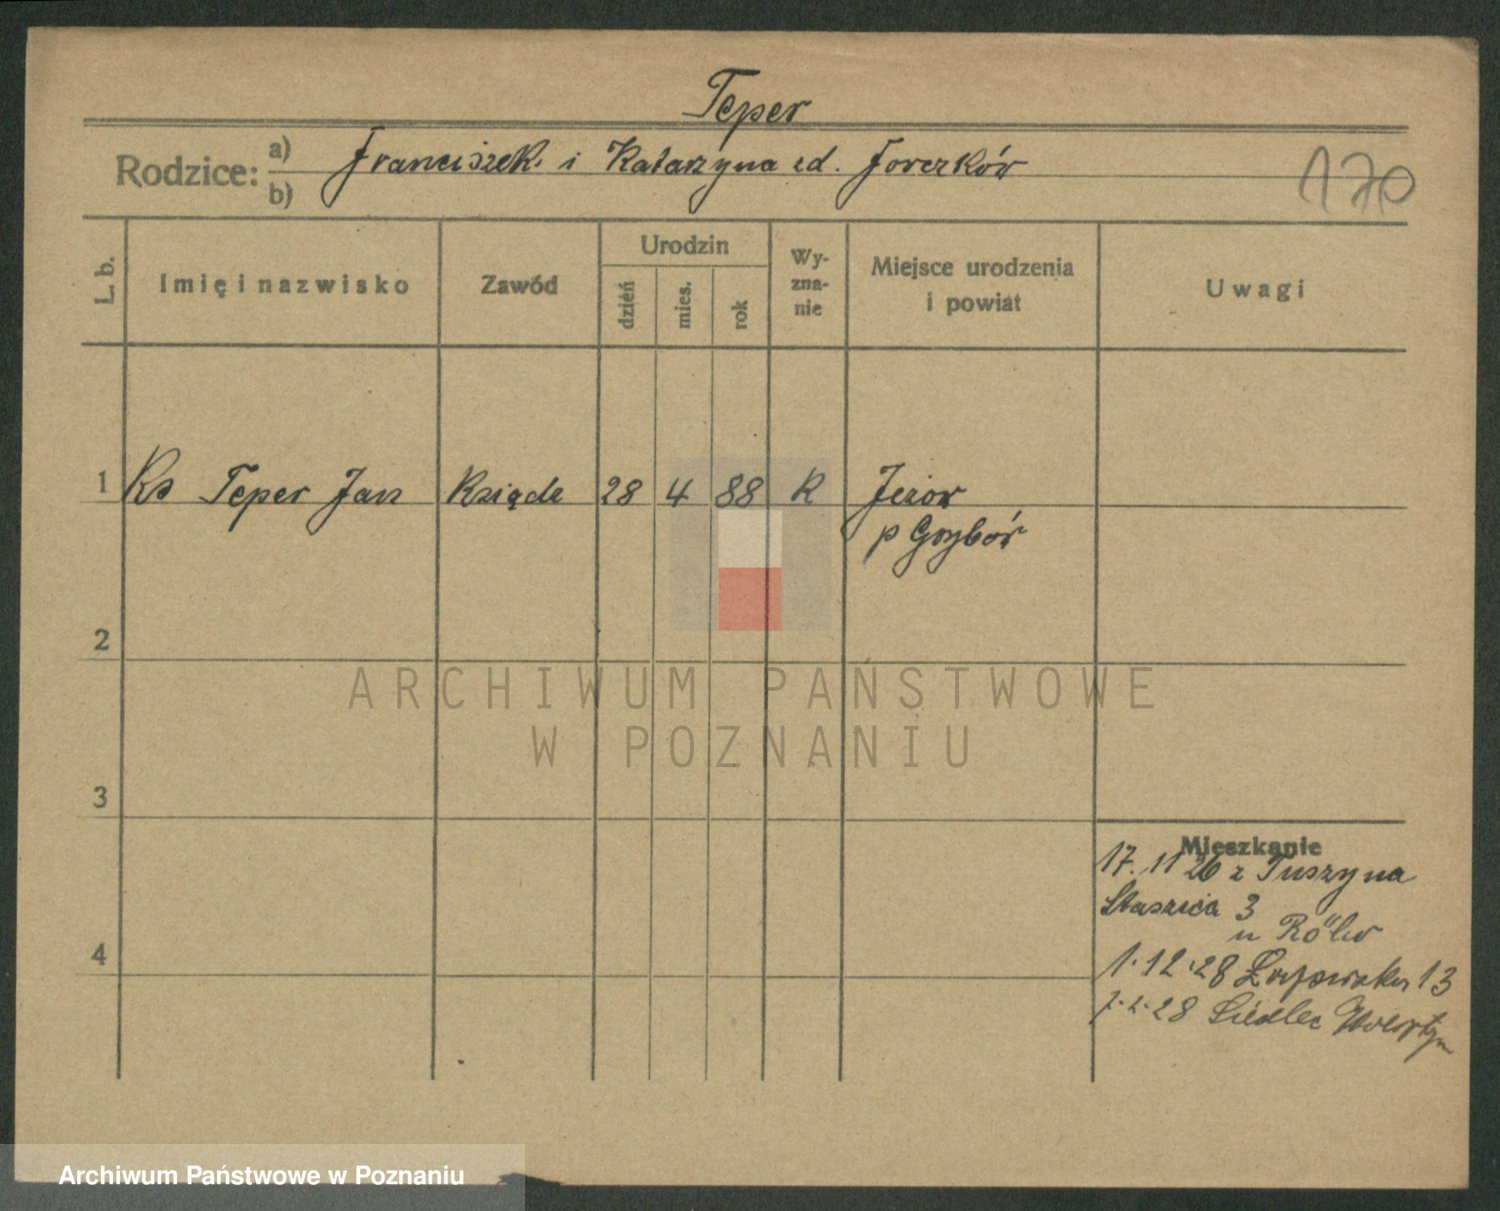 Teper
Rodzice: a) Franciszek i Katarzyna zd. Jorczków
b)
170
L. b.
Imię i nazwisko
Zawód
Urodzin
dzień
mies.
rok
Wy-
zna-
nie
Miejsce urodzenia
i powiat
Uwagi
1 Ks Teper Jan Ksiądz 28 4 88 K Jezior
p Grybór
2
3
4
Mieszkanie
17. 11 26 z Tuszyna
Staszica 3
u
1.12.28 13
28 Siedlec
ARCHIWUM PAŃSTWOWE
W POZNANIU
Archiwum Państwowe w Poznaniu